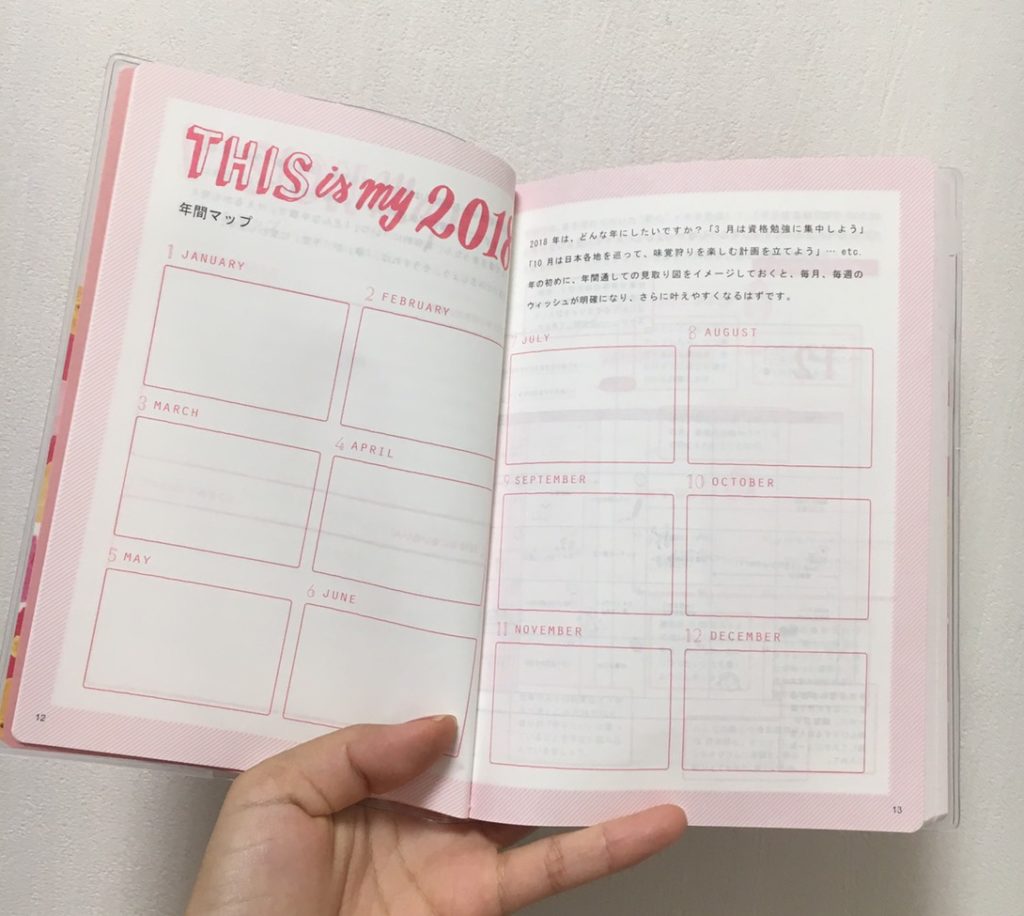 THIS is my 2018
年間マップ
1 JANUARY
2 FEBRUARY
3 MARCH
4 APRIL
5 MAY
6 JUNE
12
2018 年は、どんな年にしたいですか？「3 月は資格勉強に集中しよう」
「10 月は日本各地を巡って、味覚狩りを楽しむ計画を立てよう」… etc.
年の初めに、年間通しての見取り図をイメージしておくと、毎月、毎週の
ウィッシュが明確になり、さらに叶えやすくなるはずです。
7 JULY
8 AUGUST
9 SEPTEMBER
10 OCTOBER
11 NOVEMBER
12 DECEMBER
13